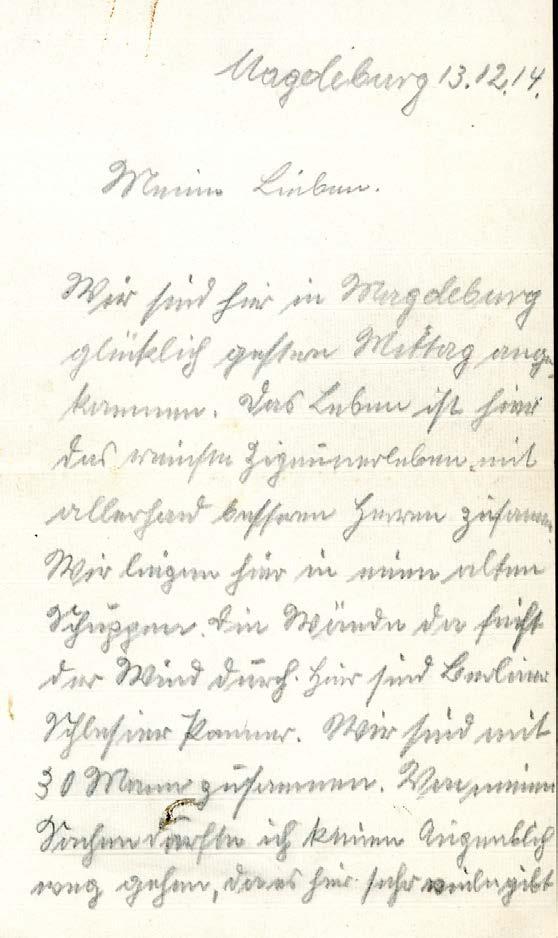 Magdeburg 13.12.14.
Meine Lieben.
Wir sind hier in Magdeburg
glücklich gestern Mittag ange
kommen. Das Leben ist hier
das reinste Zigeunerleben mit
allerhand besseren Herren zusamm
Wir liegen hier in einen alten
Schuppen. Die Wände da
der Wind durch. Hier sind Berliner
Schlesier Pommer. Wir sind mit
30 Mann zusammen. Von meinen
Sachen dürfte ich keinen Augenblick
weg gehen, da es hier sehr viele gibt